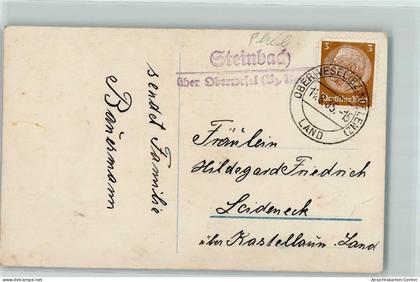 Phil
Steinbach
über Oberwesel (Bz.
3 3
Deutsches Reich
OBERWESEL (BZ KOBLENZ)
LAND
sendet Familie
Bauermann
Fräulein
Hildegard Friedrich
Leideneck
über Kastellaun-Land
Ansichtskarten-Center.de